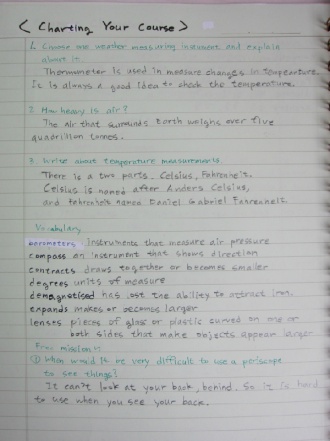 < Charting Your Course >
1. Choose one weather measuring instrument and explain
about it.
Thermometer is used in measure changes in temperature.
It is always a good idea to check the temperature.
2. How heavy is air?
The Air that surrounds Earth weighs over five
quadrillion tonnes.
3. Write about temperature measurements.
There is a two parts, Celsius, Fahrenheit.
Celsius is named after Anders Celsius,
and Fahrenheit named Daniel Gabriel Fahrenheit
Vocabulary
barometers instruments that measure air pressure
compass an instrument that shows direction
contracts draws together or becomes smaller
degrees units of measure
demagnetised has lost the ability to attract iron.
expands makes or becomes larger
lenses pieces of glass or plastic curved on one or
both sides that make objects appear larger
From mission 1:
① When would it be very difficult to use a periscope
to see things?
It can't look at your back, behind. So it is hard
to use when you see your back.